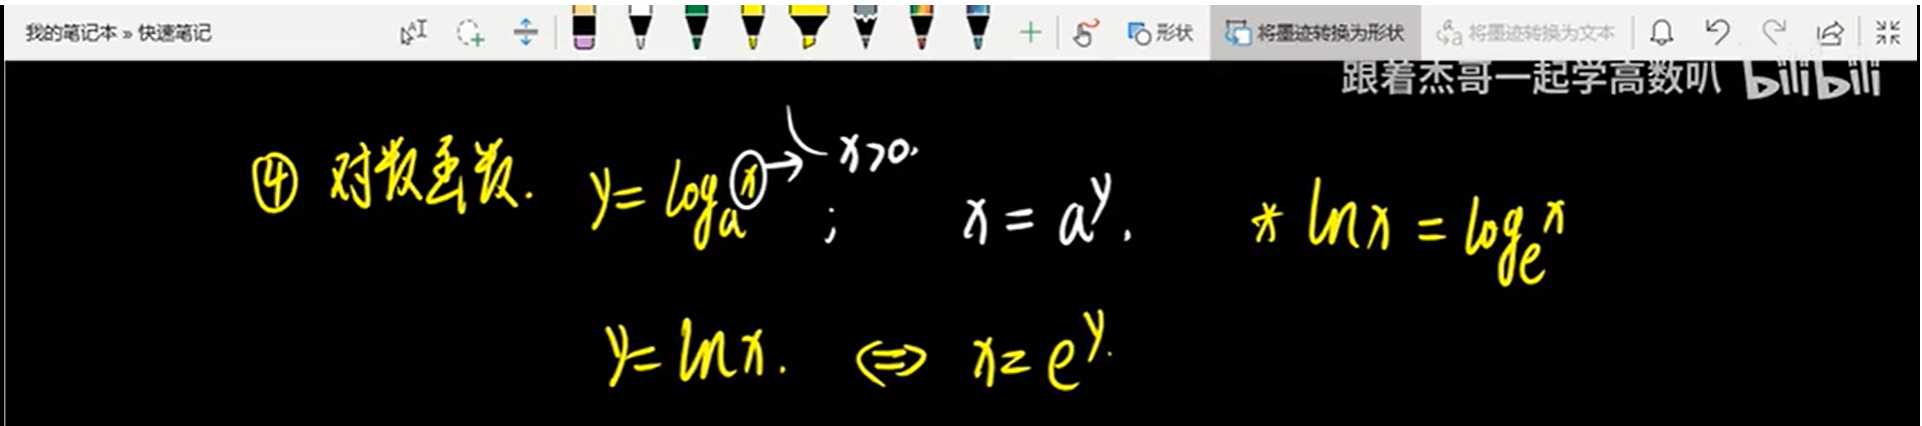 我的笔记本 » 快速笔记
形状 将墨迹转换为形状 将墨迹转换为文本
跟着杰哥一起学高数叭 bilibili
④ 对数函数. y = logₐx → x>0. ; x = a^y. * ln x = logₑx
y = ln x. ⇔ x = e^y.